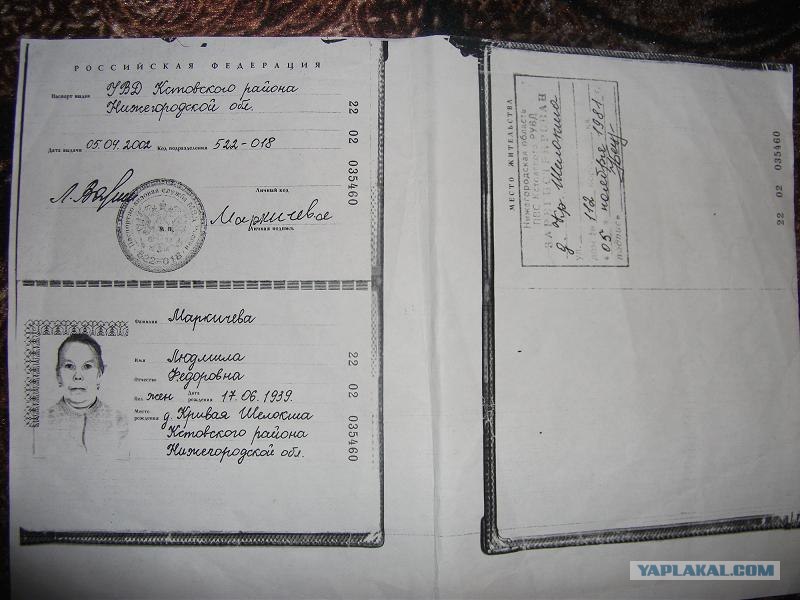 РОССИЙСКАЯ ФЕДЕРАЦИЯ
Паспорт выдан УВД Кстовского района
Нижегородской обл.
Дата выдачи 05.09.2002 Код подразделения 522-018
Личный код
Маркичева
Личная подпись
М.П.
522-018
22 02 035460
Фамилия Маркичева
Имя Людмила
Отчество Федоровна
Пол жен Дата рождения 17.06.1939
Место рождения д. Кривая Шелокша
Кстовского района
Нижегородской обл.
22 02 035460
МЕСТО ЖИТЕЛЬСТВА
Нижегородская область
ПВС Кстовского РУВД
ЗАРЕГИСТРИРОВАН
д. Кр. Шелокша
ул.
дом № 112 кв.
"05" ноября 1981г
подпись
22 02 035460
YAPLAKAL.COM